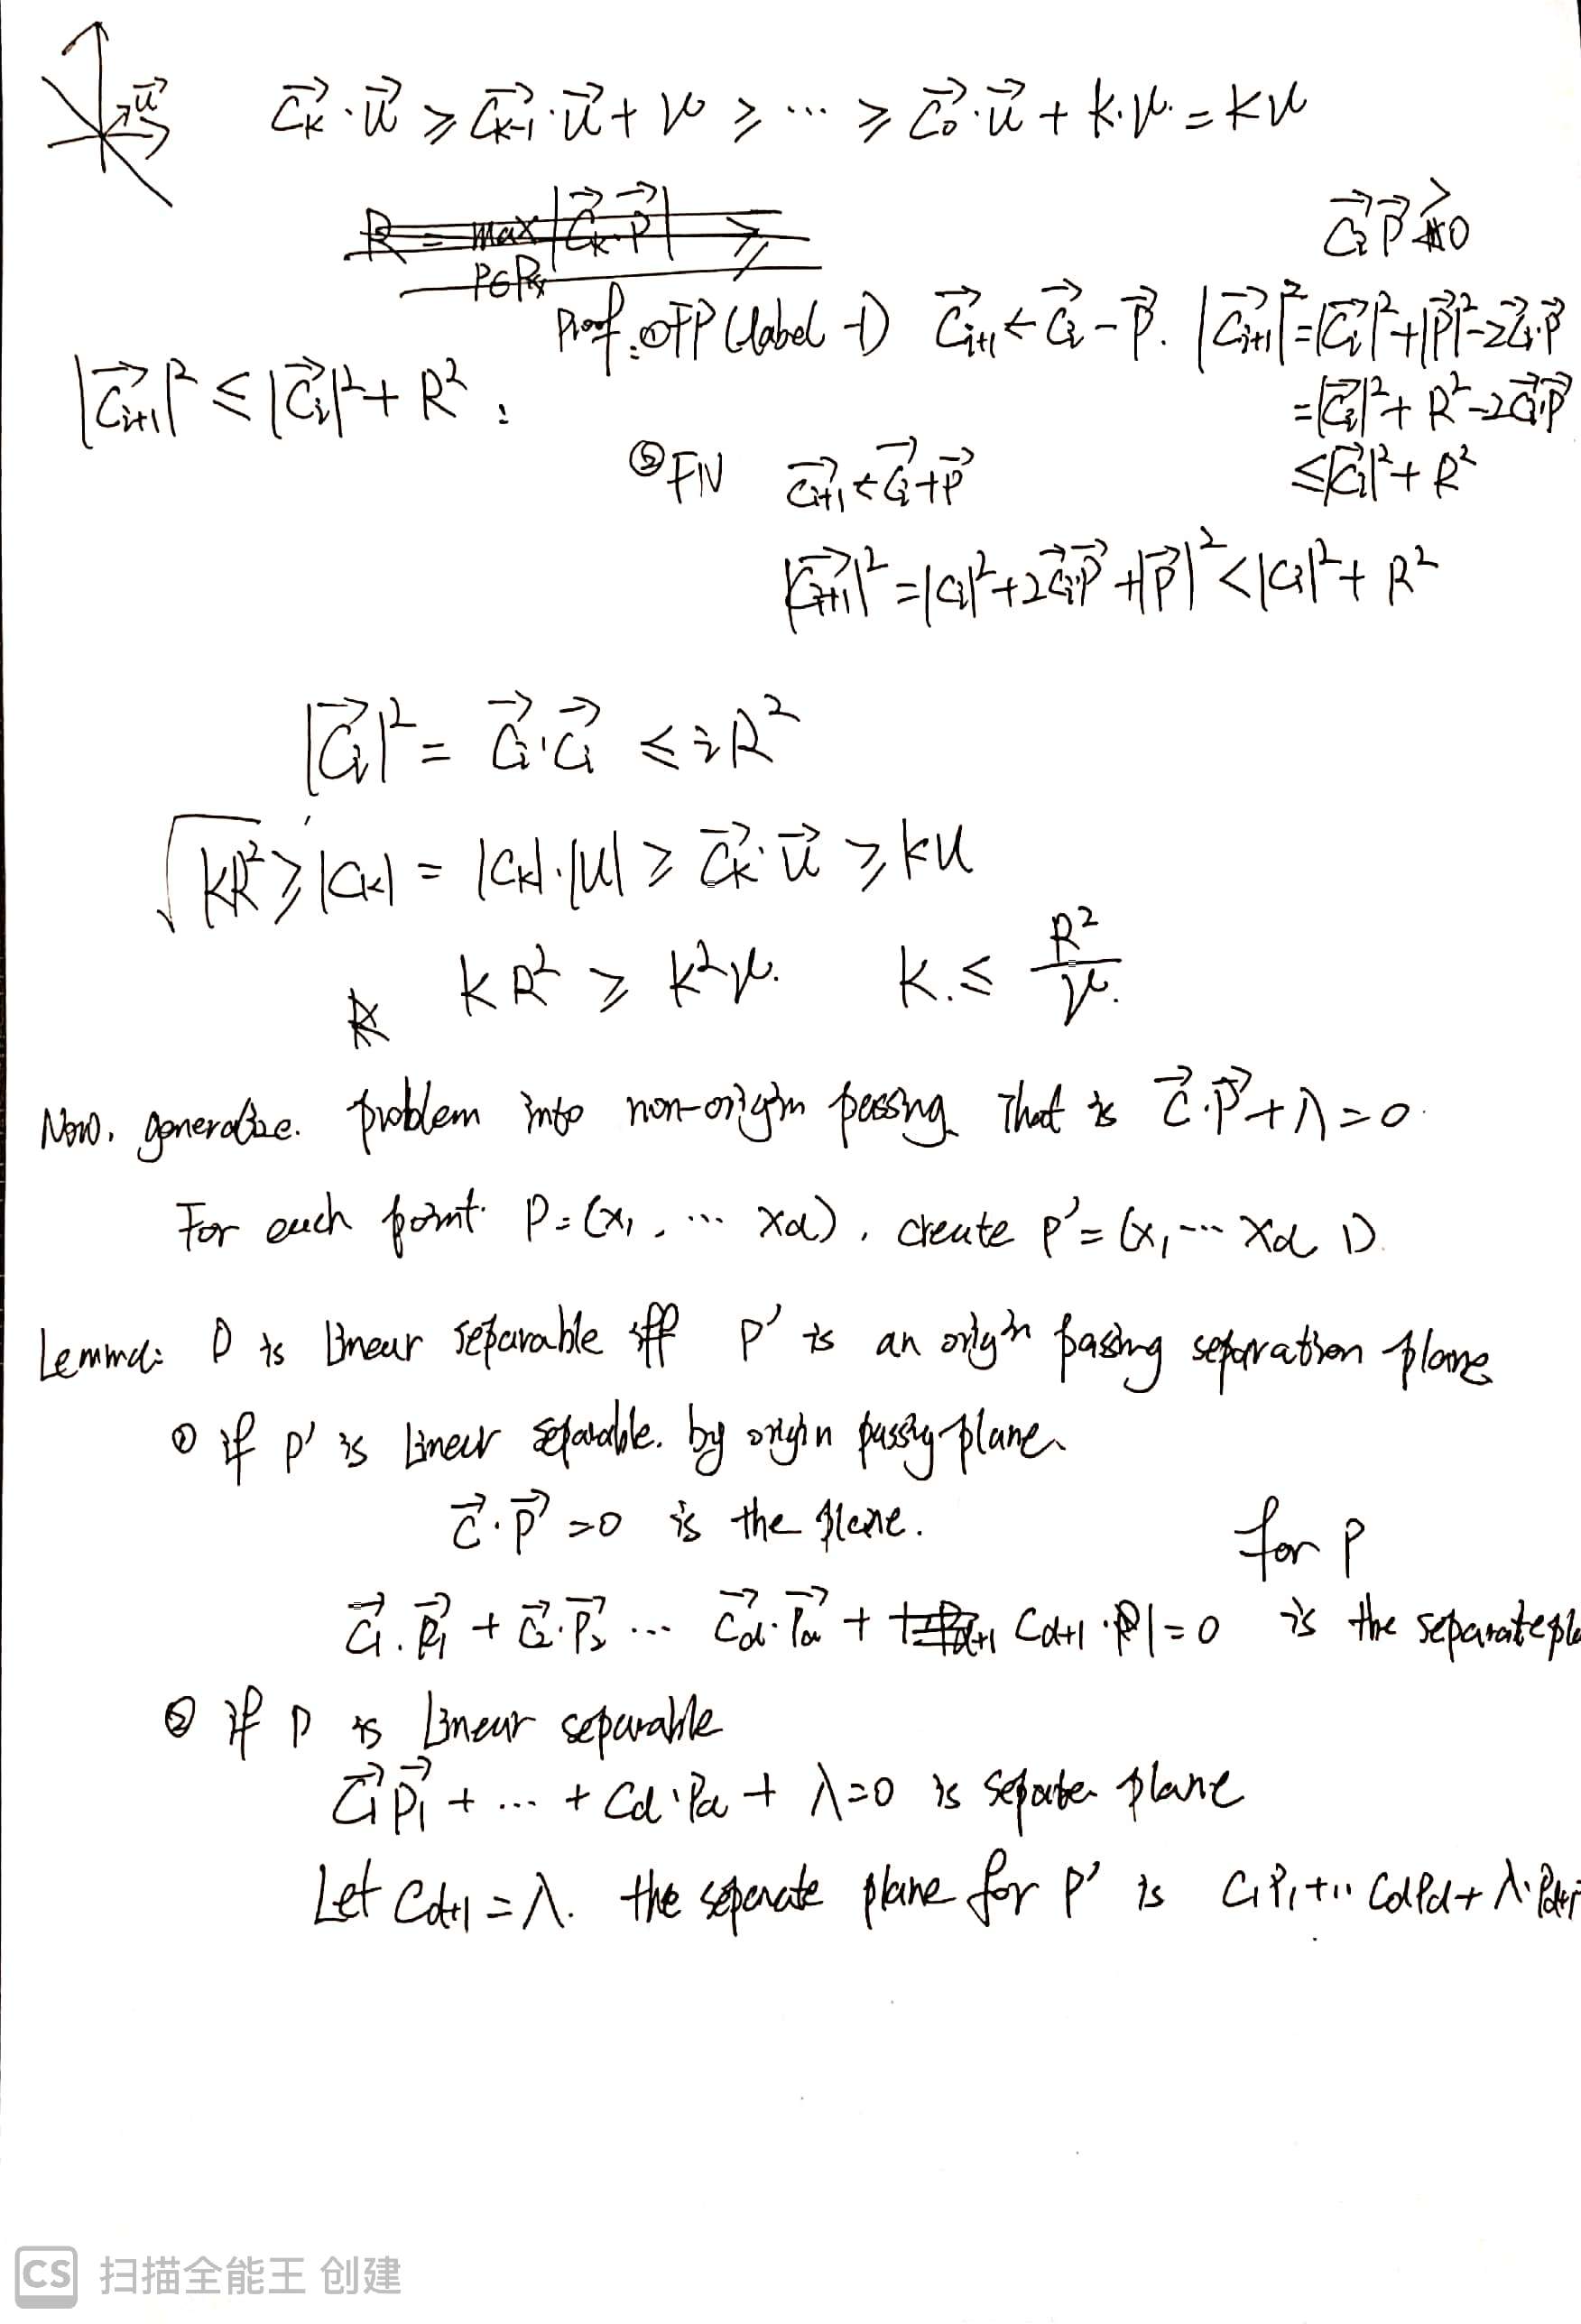 u⃗
C⃗k · u⃗ ⩾ C⃗k-1 · u⃗ + γ ⩾ ⋯ ⩾ C⃗0 · u⃗ + k·γ = kγ
R = max |C⃗k · P⃗| ⩾
P∈
C⃗i P⃗ ⩾ 0
Proof: ① FP (label -1) C⃗i+1 ← C⃗i - P⃗. |C⃗i+1|² = |C⃗i|² + |P⃗|² - 2C⃗i·P⃗
|C⃗i+1|² ≤ |C⃗i|² + R² :
= |C⃗i|² + R² - 2C⃗i·P⃗
② FN C⃗i+1 ← C⃗i + P⃗
≤ |C⃗i|² + R²
|C⃗i+1|² = |Ci|² + 2C⃗i·P⃗ + |P⃗|² < |Ci|² + R²
|C⃗i|² = C⃗i · C⃗i ≤ iR²
√kR² ⩾ |Ck| = |Ck|·|u| ⩾ C⃗k · u⃗ ⩾ kγ
kR² ⩾ k²γ. k ≤ R²/γ.
Now, generalize. problem into non-origin passing. That is C⃗·P⃗ + λ = 0.
For each point P = (x1, ⋯ xd), create P' = (x1 ⋯ xd 1).
Lemma: P is linear separable iff P' is an origin passing separation plane
① if P' is linear separable. by origin passing plane
C⃗·P⃗ = 0 is the plane.
for P
C⃗1·P⃗1 + C⃗2·P⃗2 ⋯ C⃗d·P⃗d + Cd+1 · 1 = 0 is the separate pla
② if P is linear separable
C⃗1P⃗1 + ⋯ + Cd·Pd + λ = 0 is separate plane
Let Cd+1 = λ. the seperate plane for P' is C1P1 + ·· CdPd + λ·Pd+1
CS 扫描全能王 创建